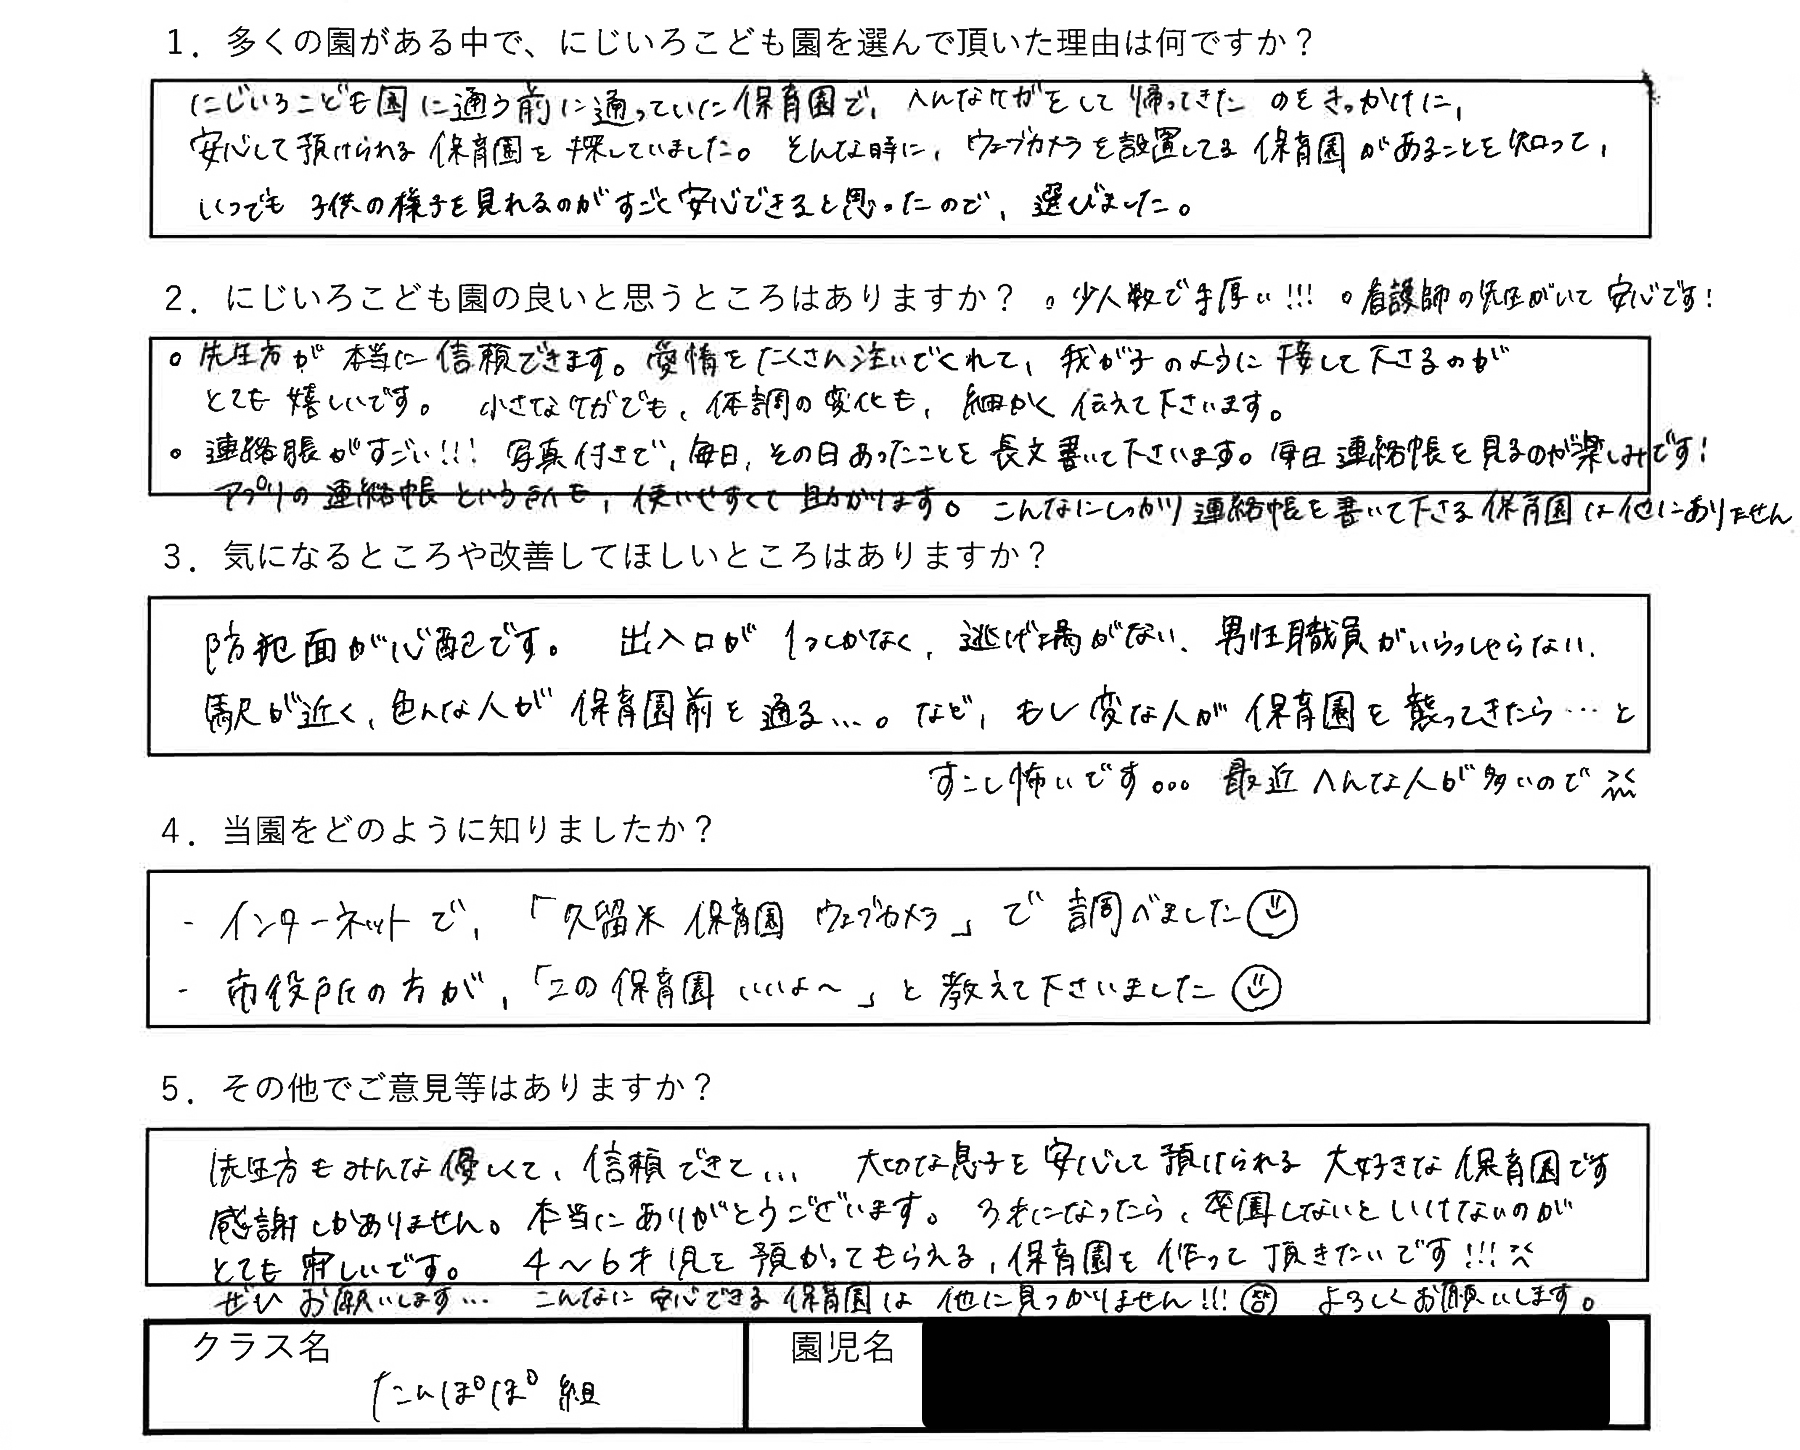 1. 多くの園がある中で、にじいろこども園を選んで頂いた理由は何ですか？
にじいろこども園に通う前に通っていた保育園で、へんなケガをして帰ってきたのをきっかけに、
安心して預けられる保育園を探していました。そんな時に、ウェブカメラを設置してる保育園があることを知って、
いつでも子供の様子を見れるのがすごく安心できると思ったので、選びました。
2. にじいろこども園の良いと思うところはありますか？ 。少人数で手厚い!!! 。看護師の先生がいて安心です!
。先生方が本当に信頼できます。愛情をたくさん注いでくれて、我が子のように接して下さるのが
とても嬉しいです。小さなケガでも、体調の変化も、細かく伝えて下さいます。
。連絡帳がすごい!!! 写真付きで、毎日、その日あったことを長文書いて下さいます。毎日連絡帳を見るのが楽しみです!
アプリの連絡帳という所も、使いやすくて助かります。こんなにしっかり連絡帳を書いて下さる保育園は他にありません
3. 気になるところや改善してほしいところはありますか？
防犯面が心配です。出入口が1つしかなく、逃げ場がない、男性職員がいらっしゃらない、
駅が近く、色んな人が保育園前を通る…。など、もし変な人が保育園を襲ってきたら…と
すこし怖いです... 最近へんな人が多いので
4. 当園をどのように知りましたか？
- インターネットで、「久留米 保育園 ウェブカメラ」で調べました
- 市役所の方が、「この保育園いいよ〜」と教えて下さいました
5. その他でご意見等はありますか？
先生方もみんな優しくて、信頼できて... 大切な息子を安心して預けられる大好きな保育園です
感謝しかありません。本当にありがとうございます。3才になったら、卒園しないといけないのが
とても寂しいです。4〜6才児を預かってもらえる、保育園を作って頂きたいです!!!
ぜひお願いします… こんなに安心できる保育園は他に見つかりません!!! よろしくお願いします。
クラス名 園児名
たんぽぽ組